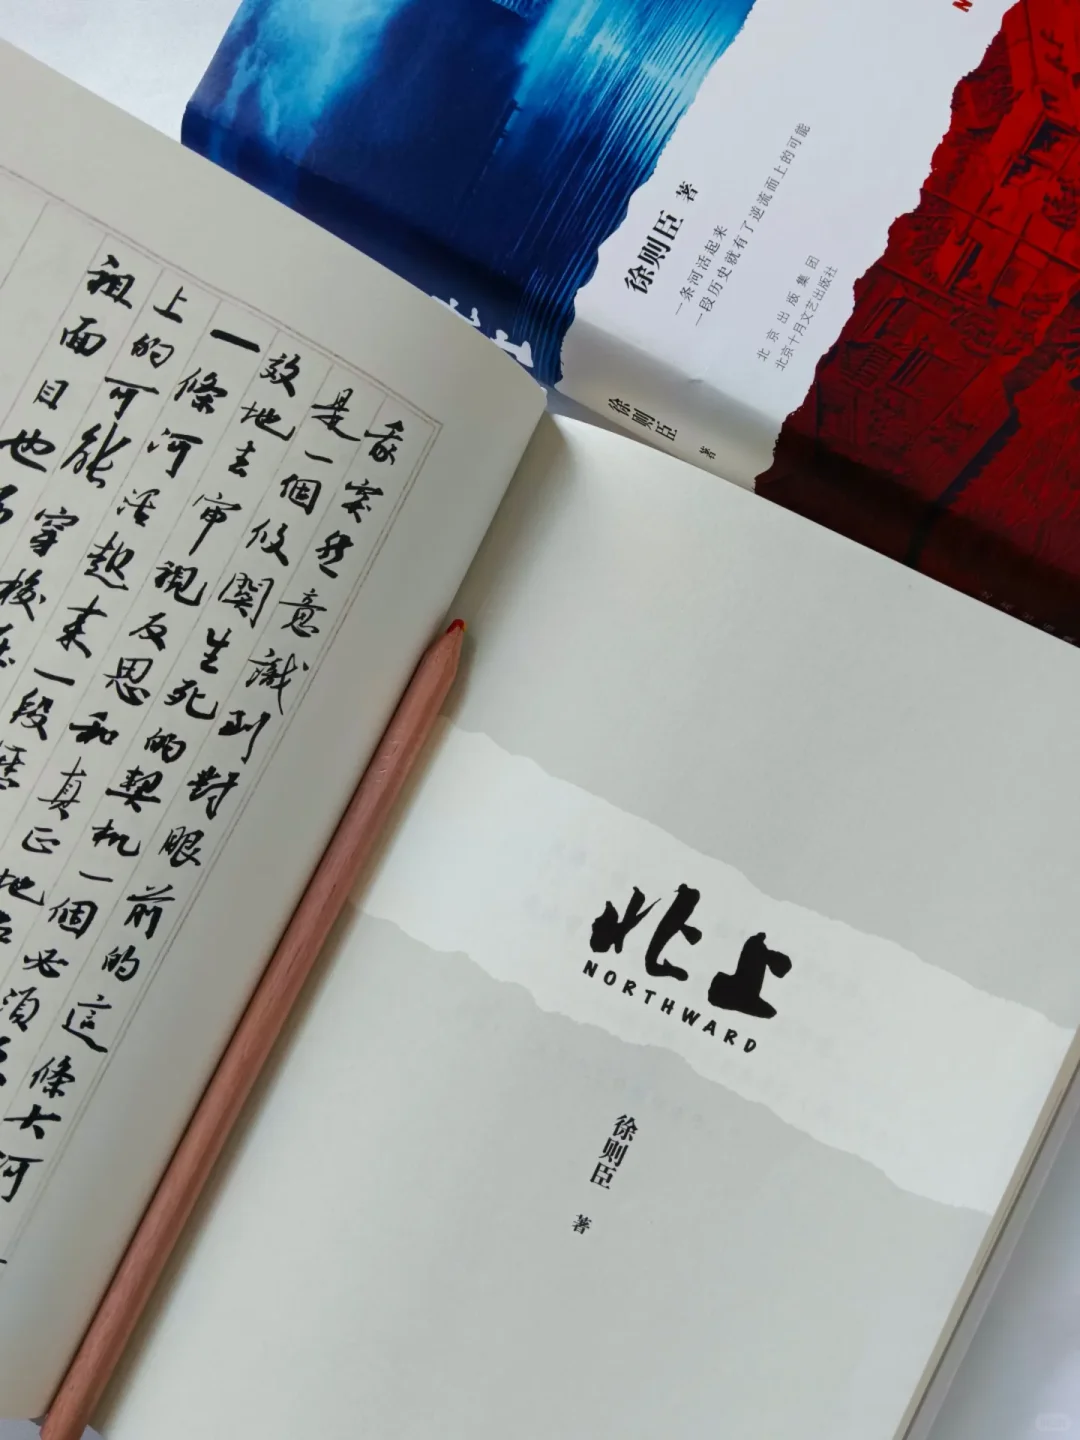 我突然意識到對眼前的這條大河
是一個攸關生死的契机一個必須
效地去审視反思和真正地
一條河活起来一段
上的可能穿梭
祖面目也
徐则臣 著
一条河活起来
一段历史就有了逆流而上的可能
北京出版集团
北京十月文艺出版社
徐则臣 著
北上
NORTHWARD
徐则臣 著